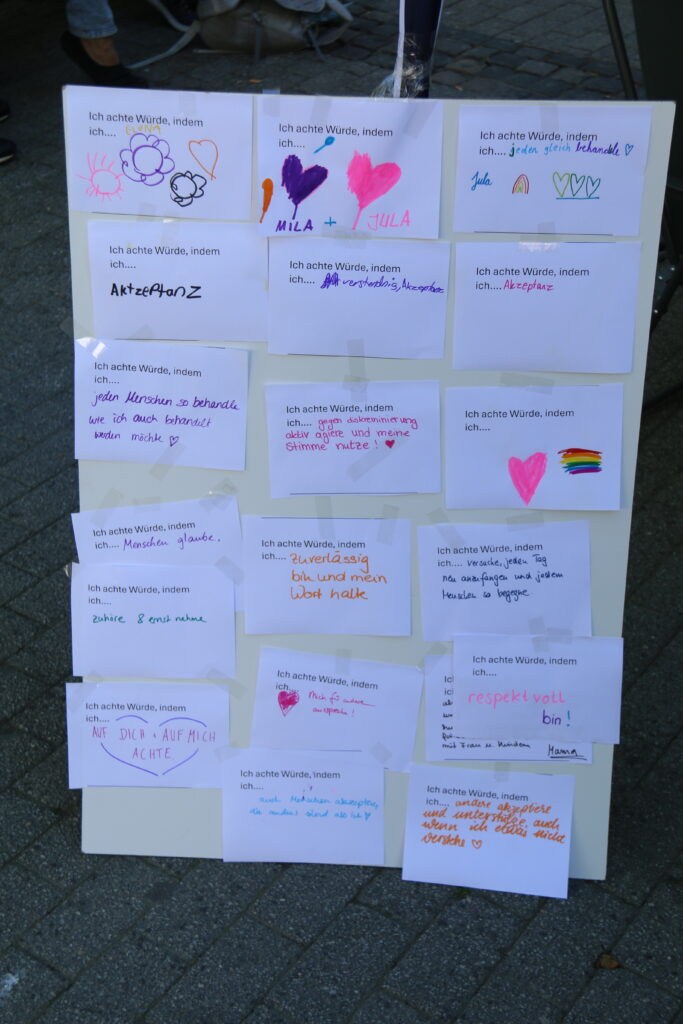 Ich achte Würde, indem
ich.... ELENA
Ich achte Würde, indem
ich....
MILA + JULA
Ich achte Würde, indem
ich.... jeden gleich behandle ♡
Jula
Ich achte Würde, indem
ich....
AkTzePtanZ
Ich achte Würde, indem
ich.... Akzeptanz
Ich achte Würde, indem
ich.... Akzeptanz
Ich achte Würde, indem
ich....
jeden Menschen so behandle
wie ich auch behandelt
werden möchte ♡
Ich achte Würde, indem
ich.... gegen diskriminierung
aktiv agiere und meine
Stimme nutze! ♥
Ich achte Würde, indem
ich....
Ich achte Würde, indem
ich.... Menschen glaube.
Ich achte Würde, indem
ich.... zuverlässig
bin und mein
Wort halte
Ich achte Würde, indem
ich.... versuche, jeden Tag
neu anzufangen und jedem
Menschen so begegne.
Ich achte Würde, indem
ich....
zuhöre & ernst nehme
Ich achte Würde, indem
ich....
Mich für andere
ausspreche!
Ich achte Würde, indem
ich....
respektvoll
bin!
mit Frau u. Kindern
Ich achte Würde, indem
ich....
AUF DICH + AUF MICH
ACHTE.
Ich achte Würde, indem
ich....
auch Menschen akzeptiere,
die anders sind als ich ♡
Ich achte Würde, indem
ich.... andere akzeptiere
und unterstütze, auch
wenn ich etwas nicht
verstehe ♡